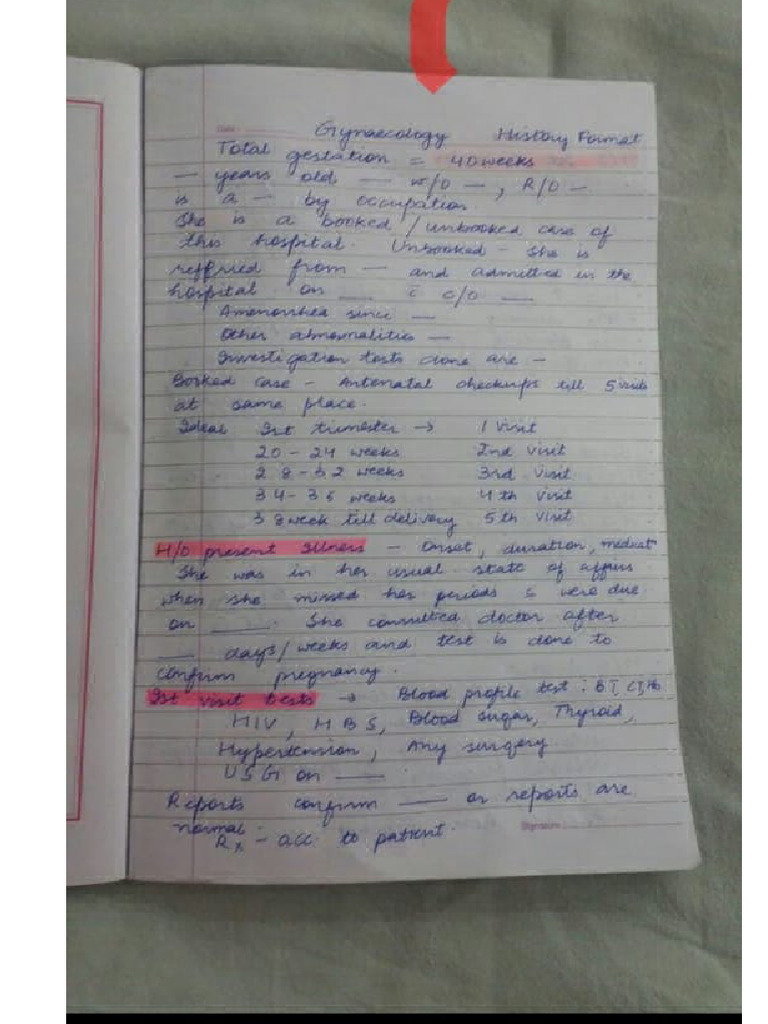 Date:
Gynaecology History Format
Total gestation = 40 weeks
— years old — w/o —, R/O —
is a — by occupation.
She is a booked / unbooked case of
this hospital. Unbooked - She is
reffried from — and admitted in the
hospital on — c̄ c/o —
Amenorrhea since —
Other abnormalities —
Investigation tests done are —
Booked case - Antenatal checkups till 5 visits
at same place.
Ideal Ist trimester → 1 Visit
20 - 24 weeks IInd Visit
28 - 32 weeks 3rd Visit
34 - 36 weeks 4th Visit
38 week till delivery 5th Visit
H/O present illness - Onset, duration, medicatⁿ
She was in her usual state of affairs
when she missed her periods & were due
on —. She consulted doctor after
— days / weeks and test is done to
confirm pregnancy.
Ist visit tests → Blood profile test : BT, CT, Hb
HIV, HBS, Blood sugar, Thyroid,
Hypertension, Any surgery
USG on —
Reports confirm — or reports are
normal.
Rx - acc to patient.
Signature: